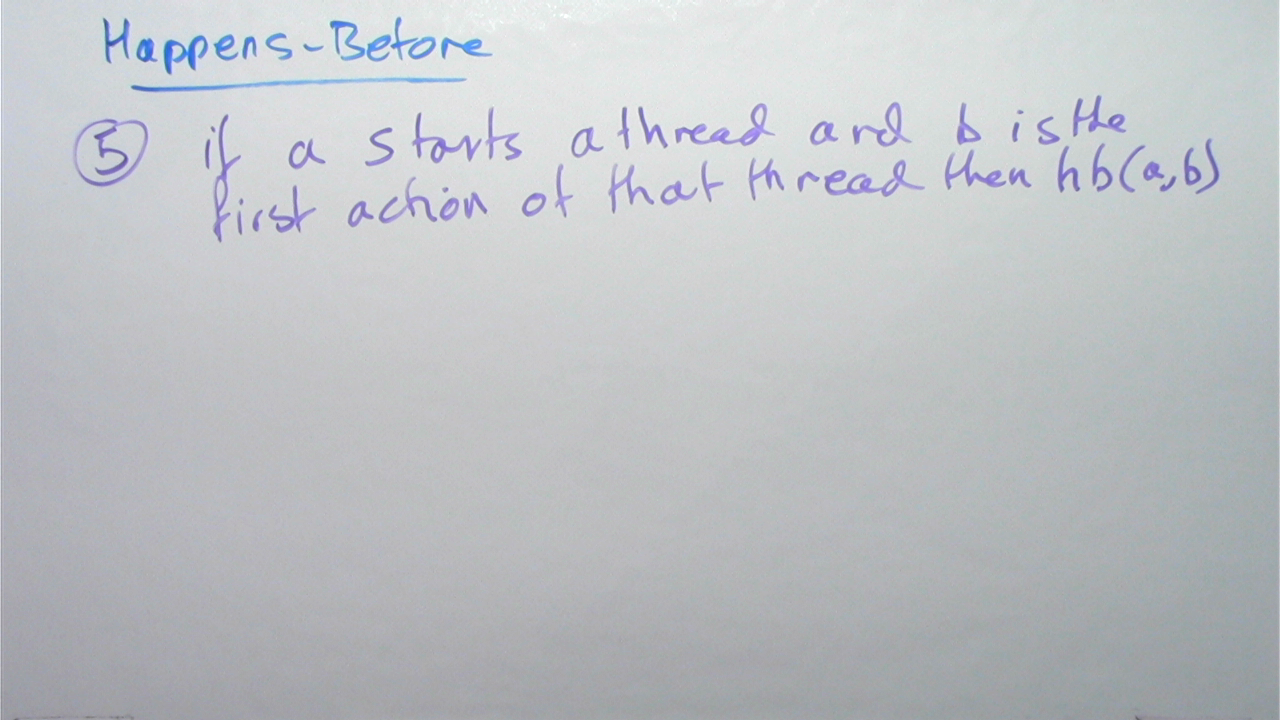 Happens-Before
⑤ if a starts a thread and b is the
first action of that thread then hb(a,b)